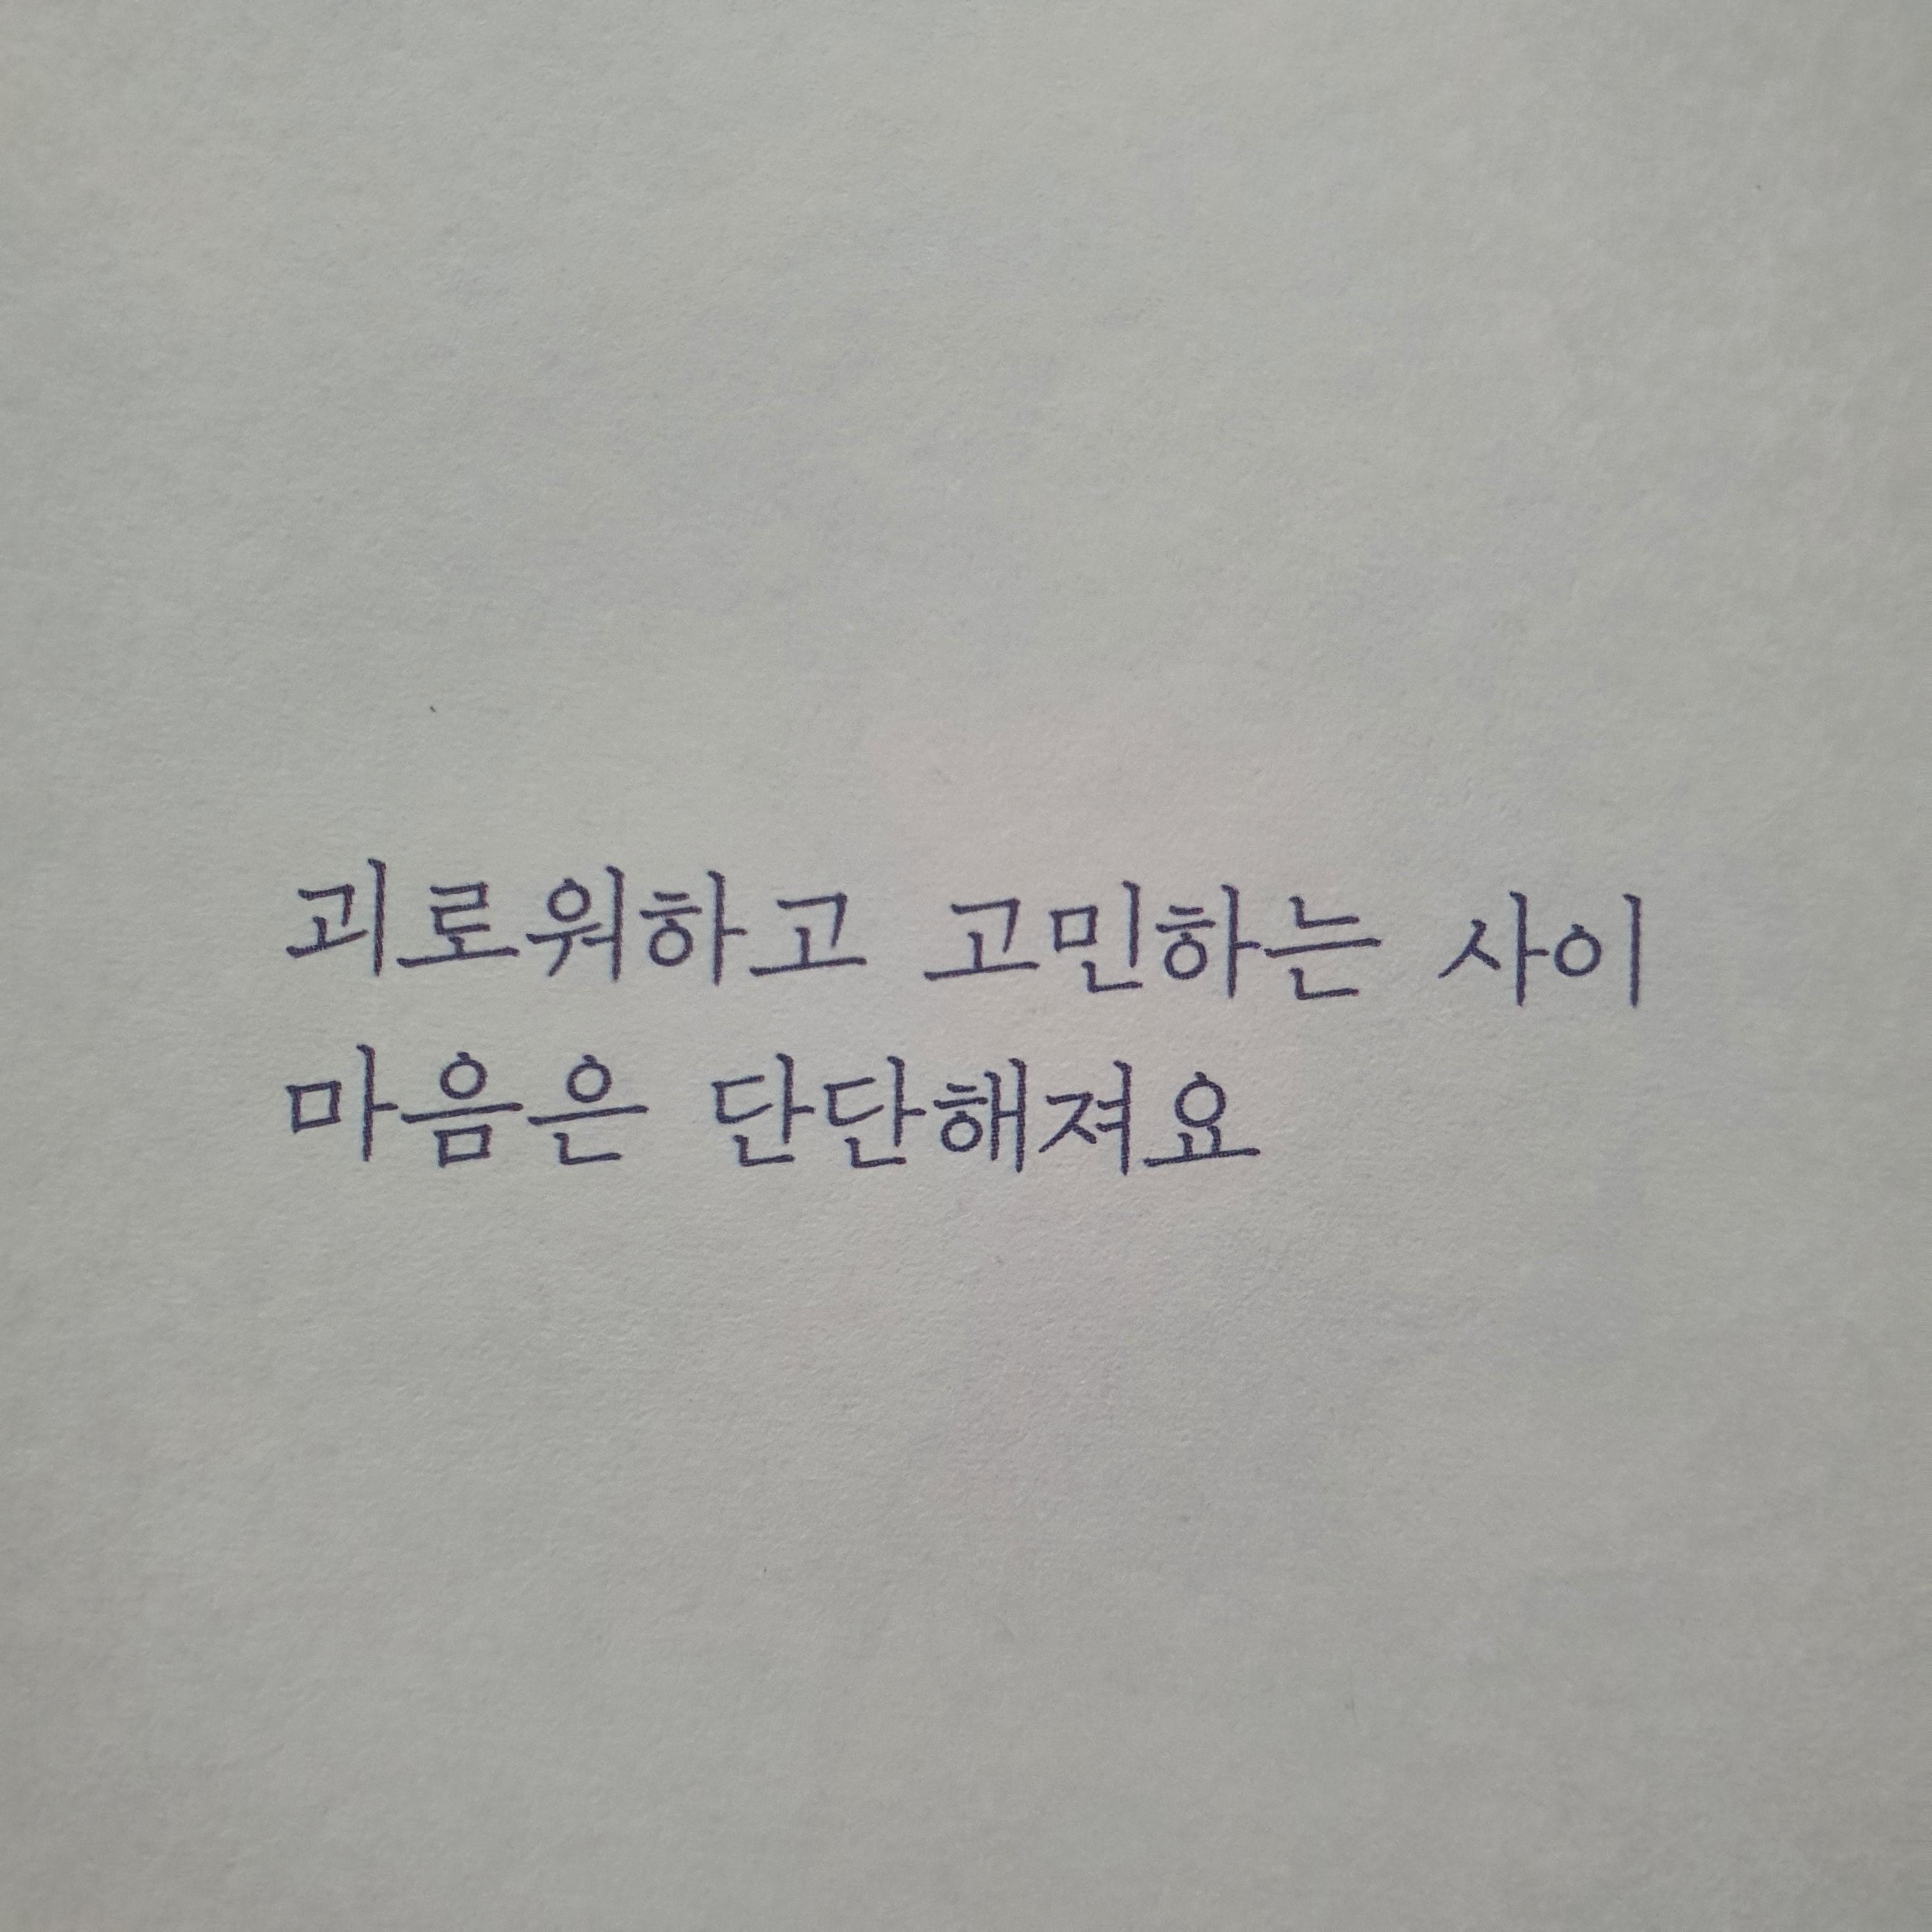 괴로워하고 고민하는 사이
마음은 단단해져요